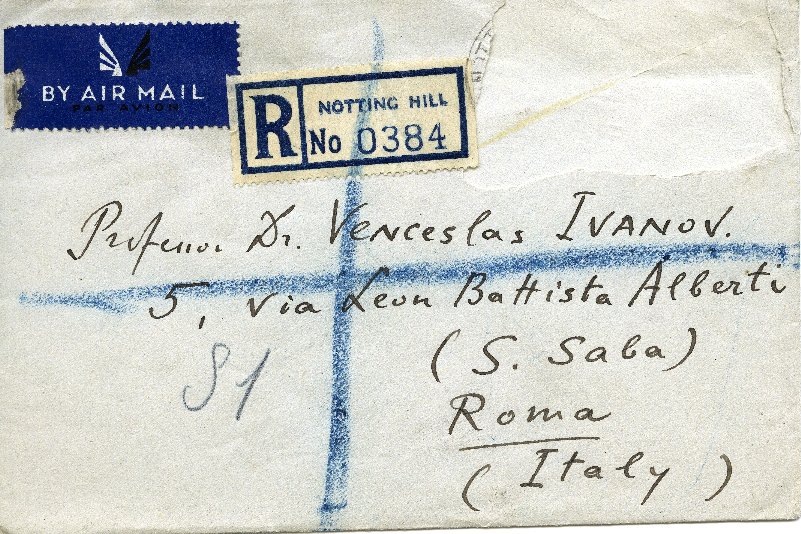 BY AIR MAIL
PAR AVION
R
NOTTING HILL
No 0384
Professor Dr. Venceslas IVANOV.
5, via Leon Battista Alberti
(S. Saba)
Roma
(Italy)